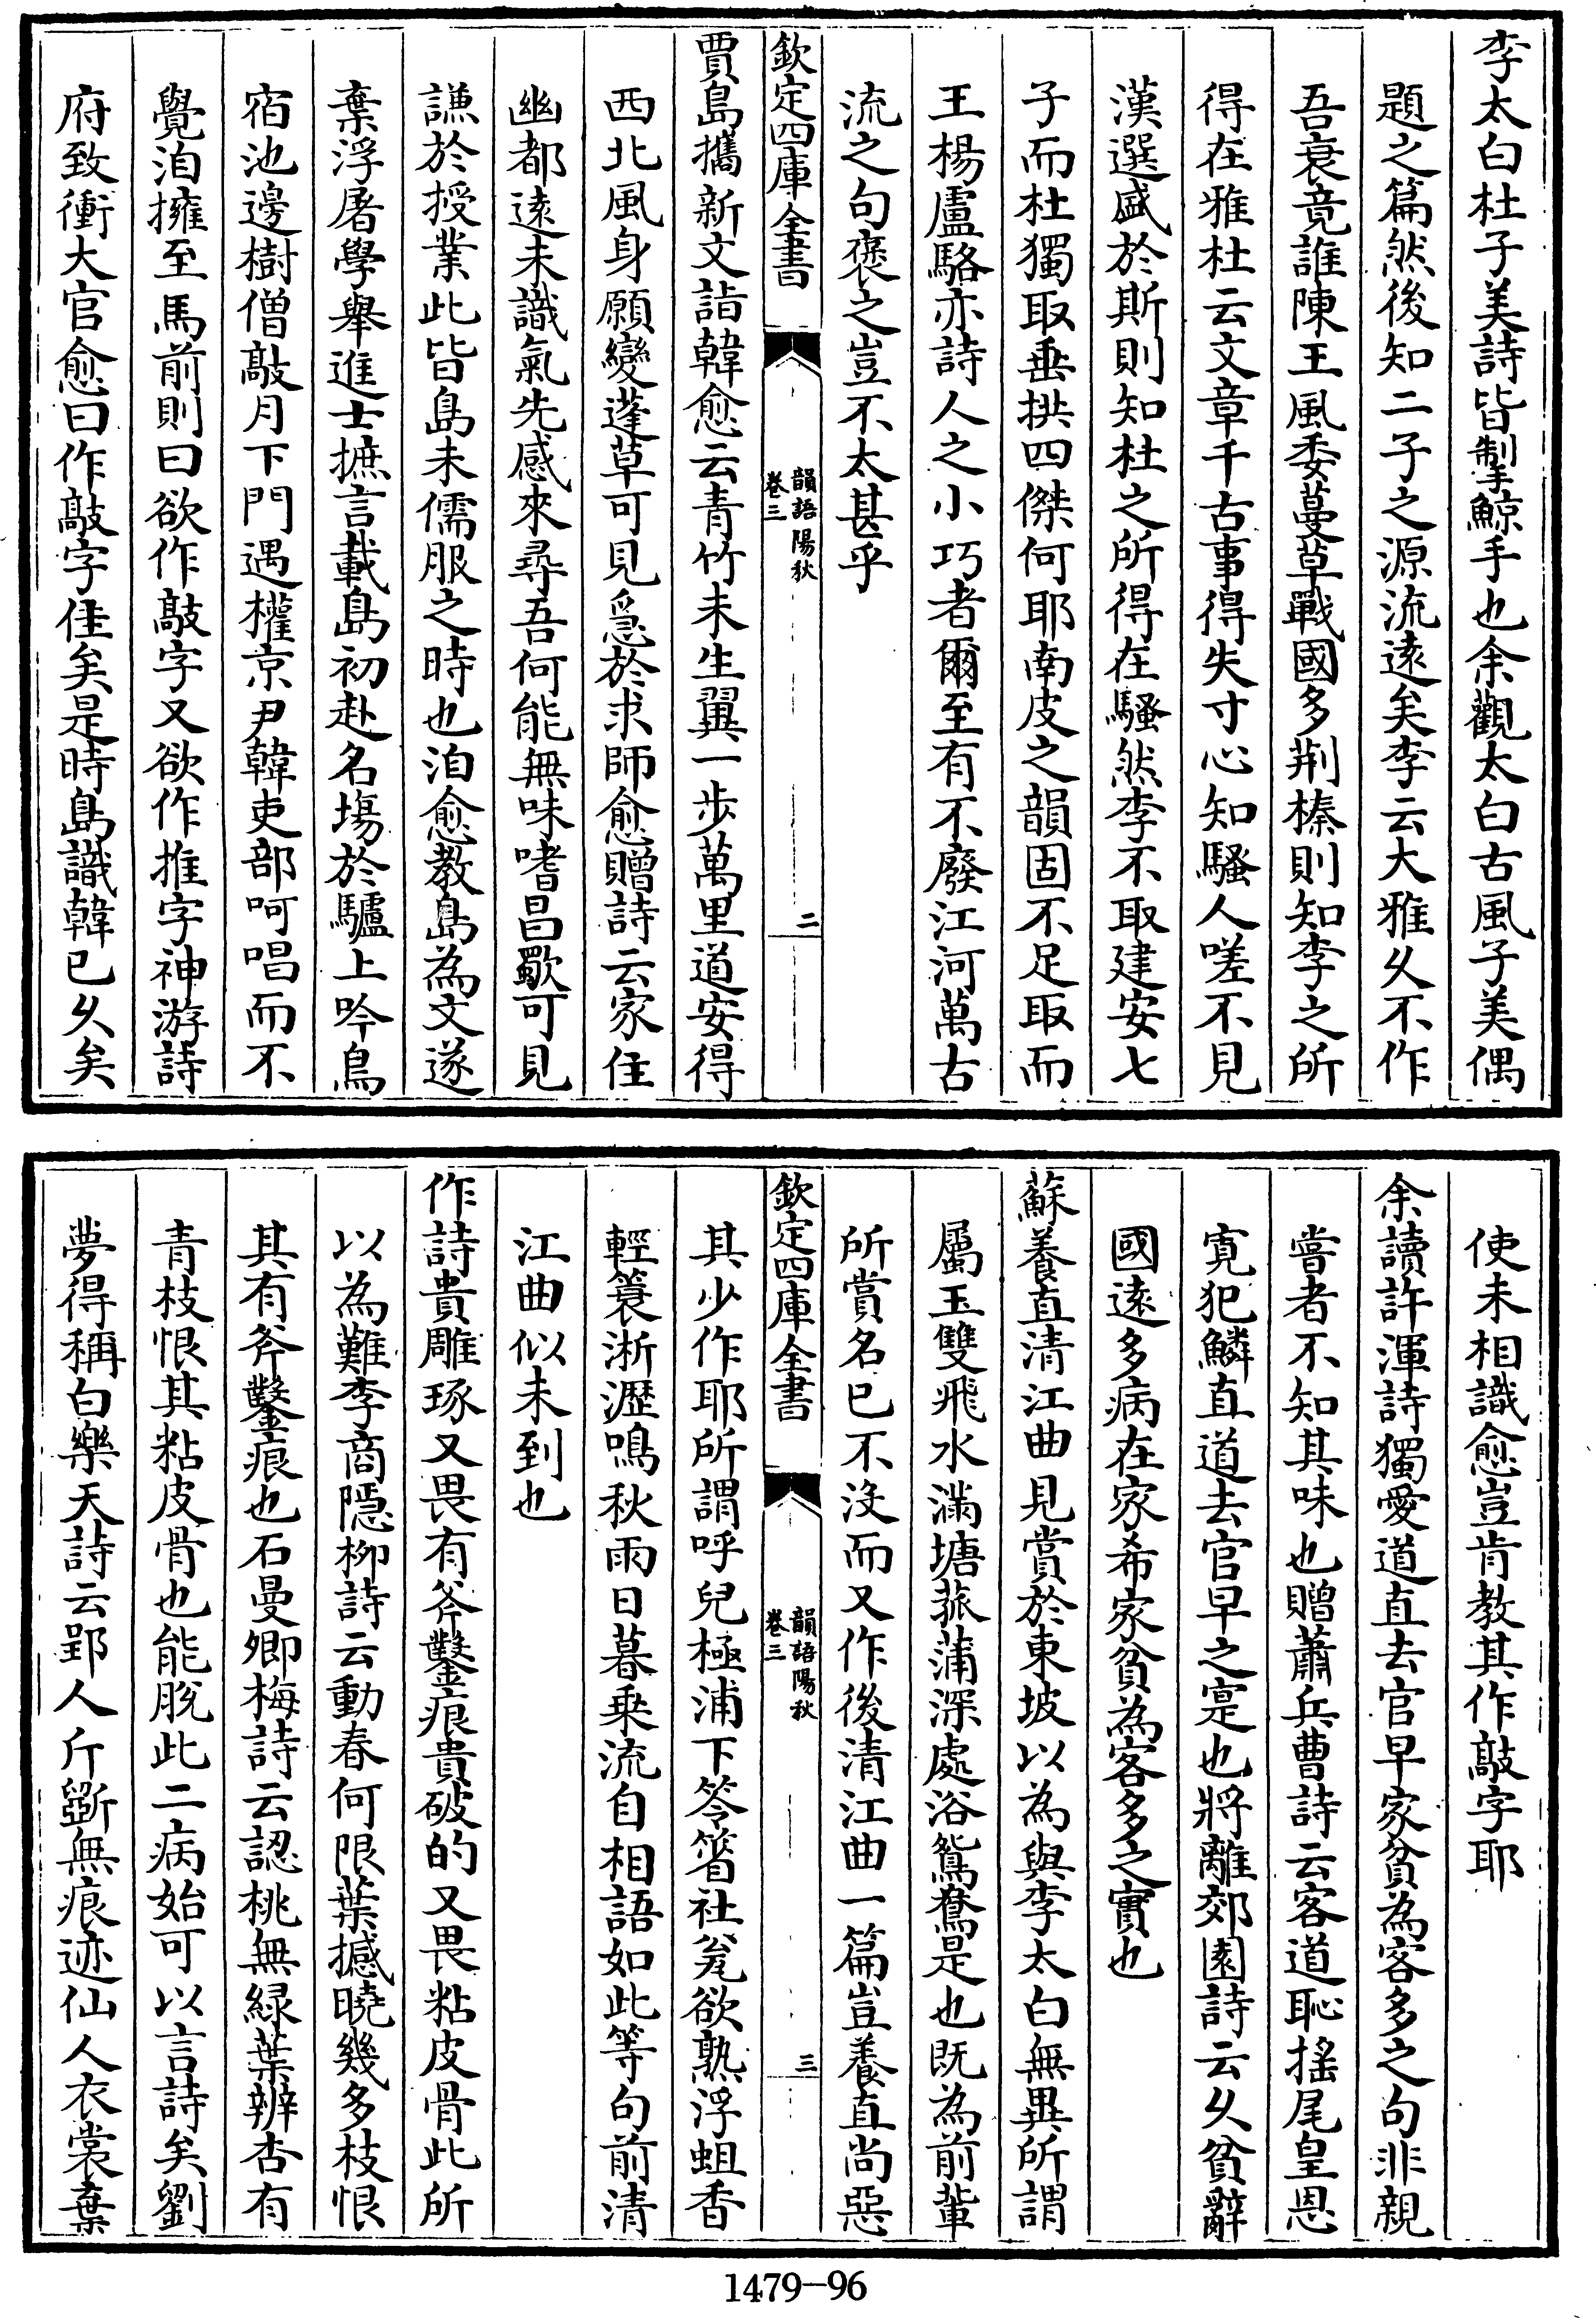 李太白杜子美詩皆掣鯨手也余觀太白古風子美偶
題之篇然後知二子之源流遠矣李云大雅乆不作
吾衰竟誰陳王風委蔓草戰國多荆榛則知李之所
得在雅杜云文章千古事得失寸心知騷人嗟不見
漢選盛於斯則知杜之所得在騷然李不取建安七
子而杜獨取垂拱四傑何耶南皮之韻固不足取而
王楊盧駱亦詩人之小巧者爾至有不廢江河萬古
流之句褒之豈不太甚乎
欽定四庫全書
韻語陽秋
卷三
二
賈島攜新文詣韓愈云青竹未生翼一步萬里道安得
西北風身願變蓬草可見急於求師愈贈詩云家住
幽都遠未識氣先感來尋吾何能無味嗜昌歜可見
謙於授業此皆島未儒服之時也洎愈教島為文遂
棄浮屠學舉進士摭言載島初赴名塲於驢上吟鳥
宿池邊樹僧敲月下門遇權京尹韓吏部呵唱而不
覺洎擁至馬前則曰欲作敲字又欲作推字神游詩
府致衝大官愈曰作敲字佳矣是時島識韓已乆矣
使未相識愈豈肯教其作敲字耶
余讀許渾詩獨愛道直去官早家貧為客多之句非親
嘗者不知其味也贈蕭兵曹詩云客道恥揺尾皇恩
寛犯鱗直道去官早之寔也將離郊園詩云乆貧辭
國遠多病在家希家貧為客多之實也
蘇養直清江曲見賞於東坡以為與李太白無異所謂
屬玉雙飛水滿塘菰蒲深處浴鴛鴦是也既為前輩
所賞名已不没而又作後清江曲一篇豈養直尚惡
欽定四庫全書
韻語陽秋
卷三
三
其少作耶所謂呼兒極浦下笭箵社瓮欲熟浮蛆香
輕蓑淅瀝鳴秋雨日暮乗流自相語如此等句前清
江曲似未到也
作詩貴雕琢又畏有斧鑿痕貴破的又畏粘皮骨此所
以為難李商隱柳詩云動春何限葉撼曉幾多枝恨
其有斧鑿痕也石曼卿梅詩云認桃無緑葉辨杏有
青枝恨其粘皮骨也能脱此二病始可以言詩矣劉
夢得稱白樂天詩云郢人斤斵無痕迹仙人衣裳棄
1479-96